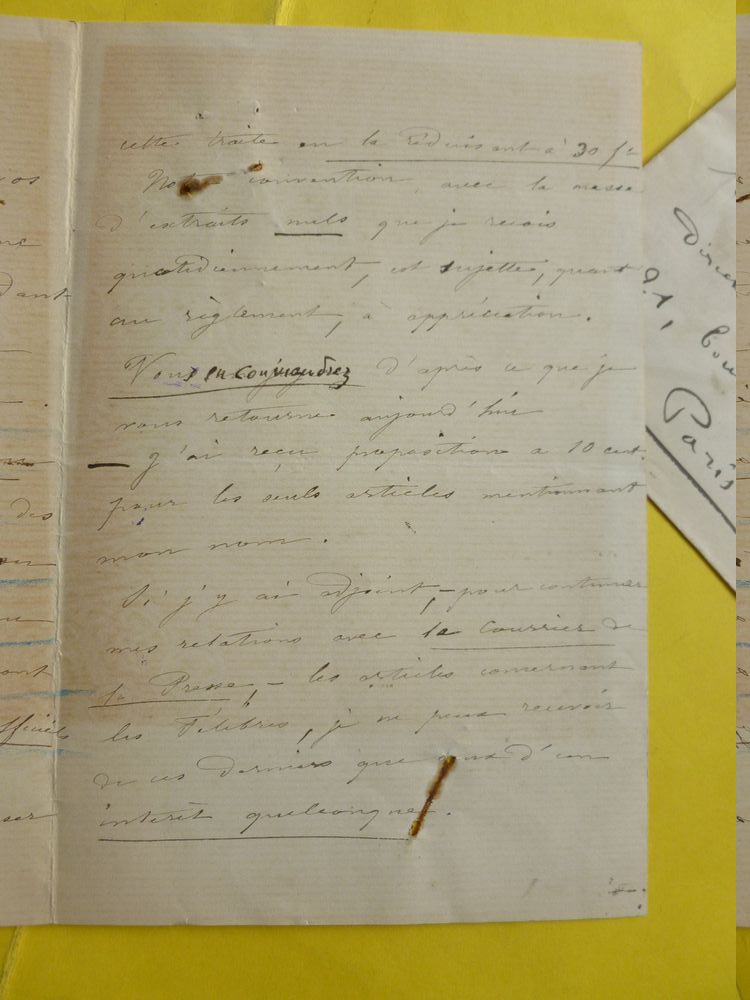 cette traite en la réduisant à 30 f.
Notre convention, avec la masse
d'extraits nuls que je reçois
quotidiennement, est sujette, quant
au règlement, à appréciation.
Vous en conviendrez d'après ce que je
vous retourne aujourd'hui
— J'ai reçu proposition à 10 cent.
pour les seuls articles mentionnant
mon nom.
Si j'y ai adjoint, — pour continuer
mes relations avec le Courrier de
la Presse, — les articles concernant
les Félibres, je ne peux recevoir
de ces derniers que ceux d'un
intérêt quelconque.
vos
dant
des
ont
Paris